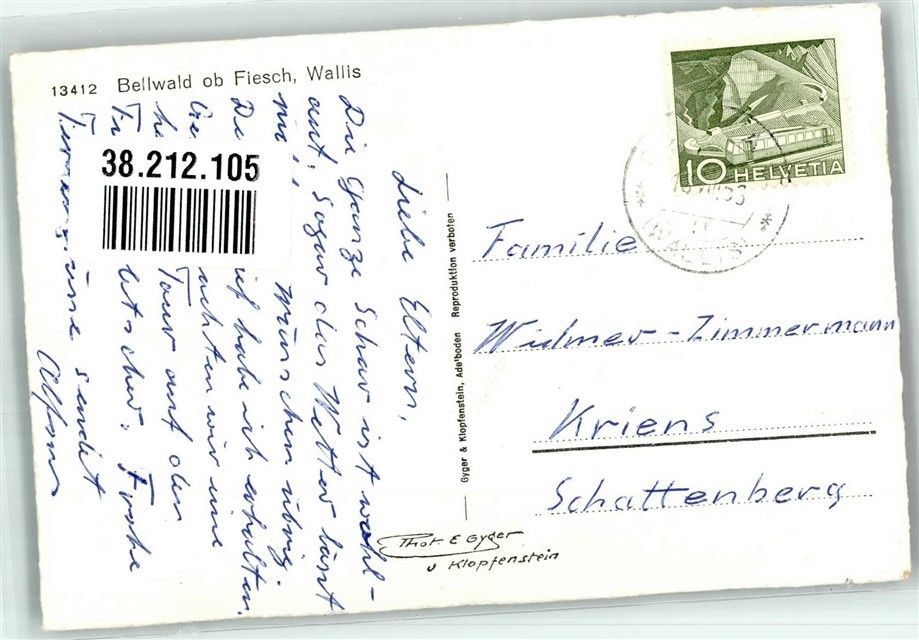 13412 Bellwald ob Fiesch, Wallis
38.212.105
Liebe Eltern,
Die Ganze Schar ist wohl-
auf; Sogar das Wetter lässt
Wünschen übrig.
De ich habe ich erhalten.
achten wir eine
Tour auf den
letscher. Frohe
sendet
Alfons
Gyger & Klopfenstein, Adelboden Reproduktion verboten
Phot. E Gyger
u Klopfenstein
10 HELVETIA
(WALLIS)
Familie
Widmer-Zimmermann
Kriens
Schattenberg